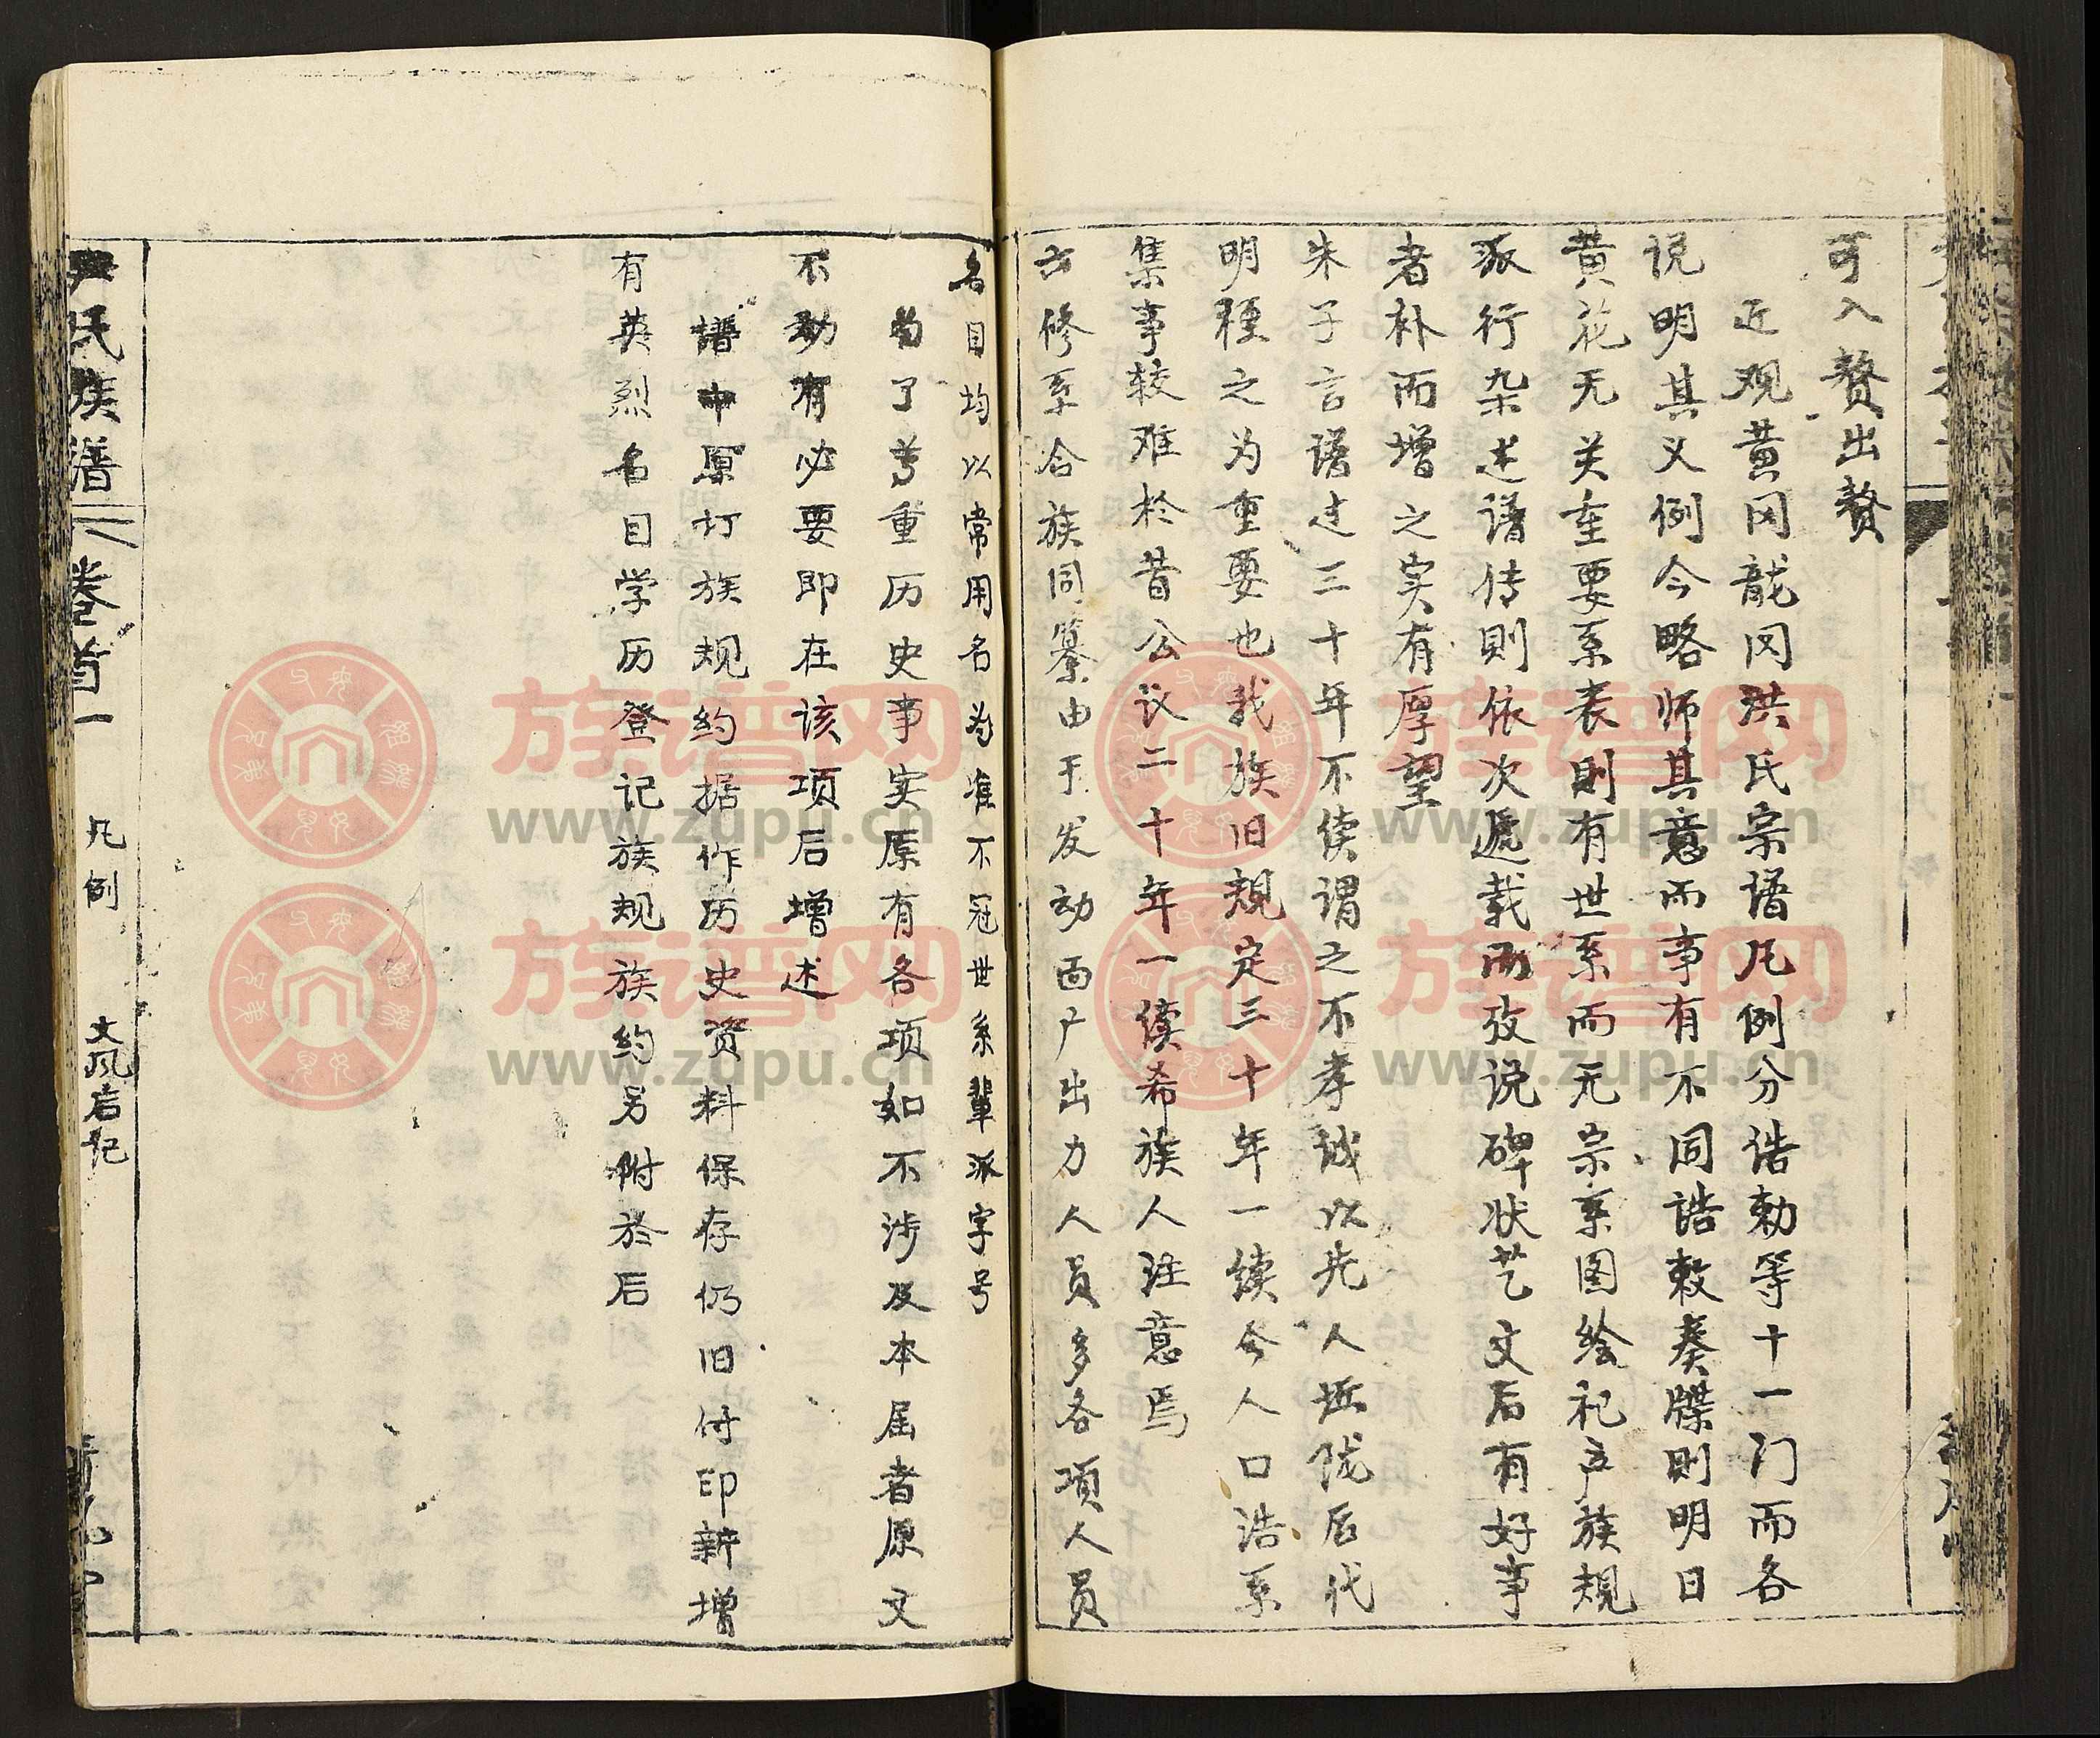 可入赘出赘
近观黄冈龍冈洪氏宗谱凡例分诰勅等十一门而各
说明其义例今略师其意而事有不同诰敕奏牒则明日
黄花无关重要系表则有世系而无宗系图绘祀产族规
派行杂述谱传則依次遞载而攷说碑状艺文后有好事
者补而增之实有厚望
朱子言谱过三十年不续谓之不孝诚以先人坵陇后代
明穜之为重要也我族旧規定三十年一续今人口浩系
集事较难於昔公议二十年一续希族人注意焉
六修系合族同纂由于发动面广出力人员多各项人员
名目均以常用名为准不冠世系輩派字号
为了尊重历史事实原有各项如不涉及本届者原文
不动有必要即在该项后增述
谱中原打族规约据作历史资料保存仍旧付印新增
有英烈名目学历登记族规族约另附於后
尹氏族谱 卷首一 凡例 文风启记
族谱网 www.zupu.cn
族谱网 www.zupu.cn
族谱网 www.zupu.cn
族谱网 www.zupu.cn